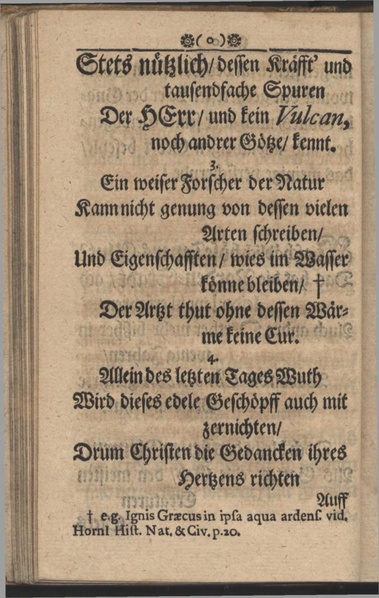 ( o )
Stets nützlich / dessen Kräfft' und
tausendfache Spuren
Der HErr / und kein Vulcan,
noch andrer Götze / kennt.
3.
Ein weiser Forscher der Natur
Kann nicht genung von dessen vielen
Arten schreiben /
Und Eigenschafften / wies im Wasser
könne bleiben / †
Der Artzt thut ohne dessen Wär-
me keine Cur.
4.
Allein des letzten Tages Wuth
Wird dieses edele Geschöpff auch mit
zernichten /
Drum Christen die Gedancken ihres
Hertzens richten
Auff
† e.g. Ignis Græcus in ipsa aqua ardens. vid.
Hornl Hist. Nat. & Civ. p.20.